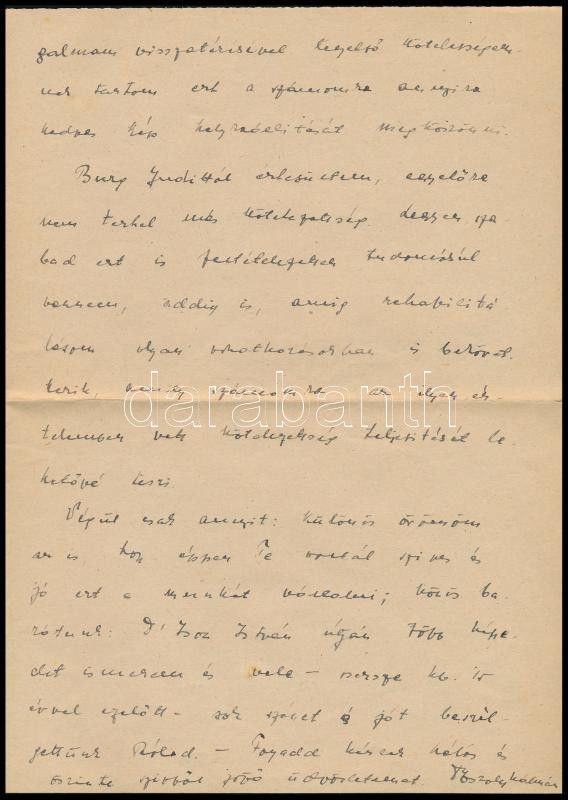 galmam visszatérésével legelső kötelességem-
nek tartom ezt a számomra annyira
kedves kép helyreállítását megköszönni.
Burg Judittól értesültem, egyelőre
nem terhel más kötelezettség. Legyen sza
bad ezt is feltételesen tudomásul
vennem, addig is, amig rehabilitá
lásom olyan vonatkozásokban is bekövet.
kezik, amely számomra az ilyen ér-
telemben vett kötelezettség teljesitését le.
hetővé teszi.
darabanth
Végül csak annyit: különös örömöm
az is hogy éppen Te voltál szives és
jó ezt a munkát vállalni; közös ba.
rátunk: Dr Isoz István útján több képe.
det ismerem és vele – persze kb. 15
évvel ezelőtt – sok szépet és jót beszél-
gettünk Rólad. – Fogadd kérlek hálás és
őszinte szivből jövő üdvözletemet. Kálmán